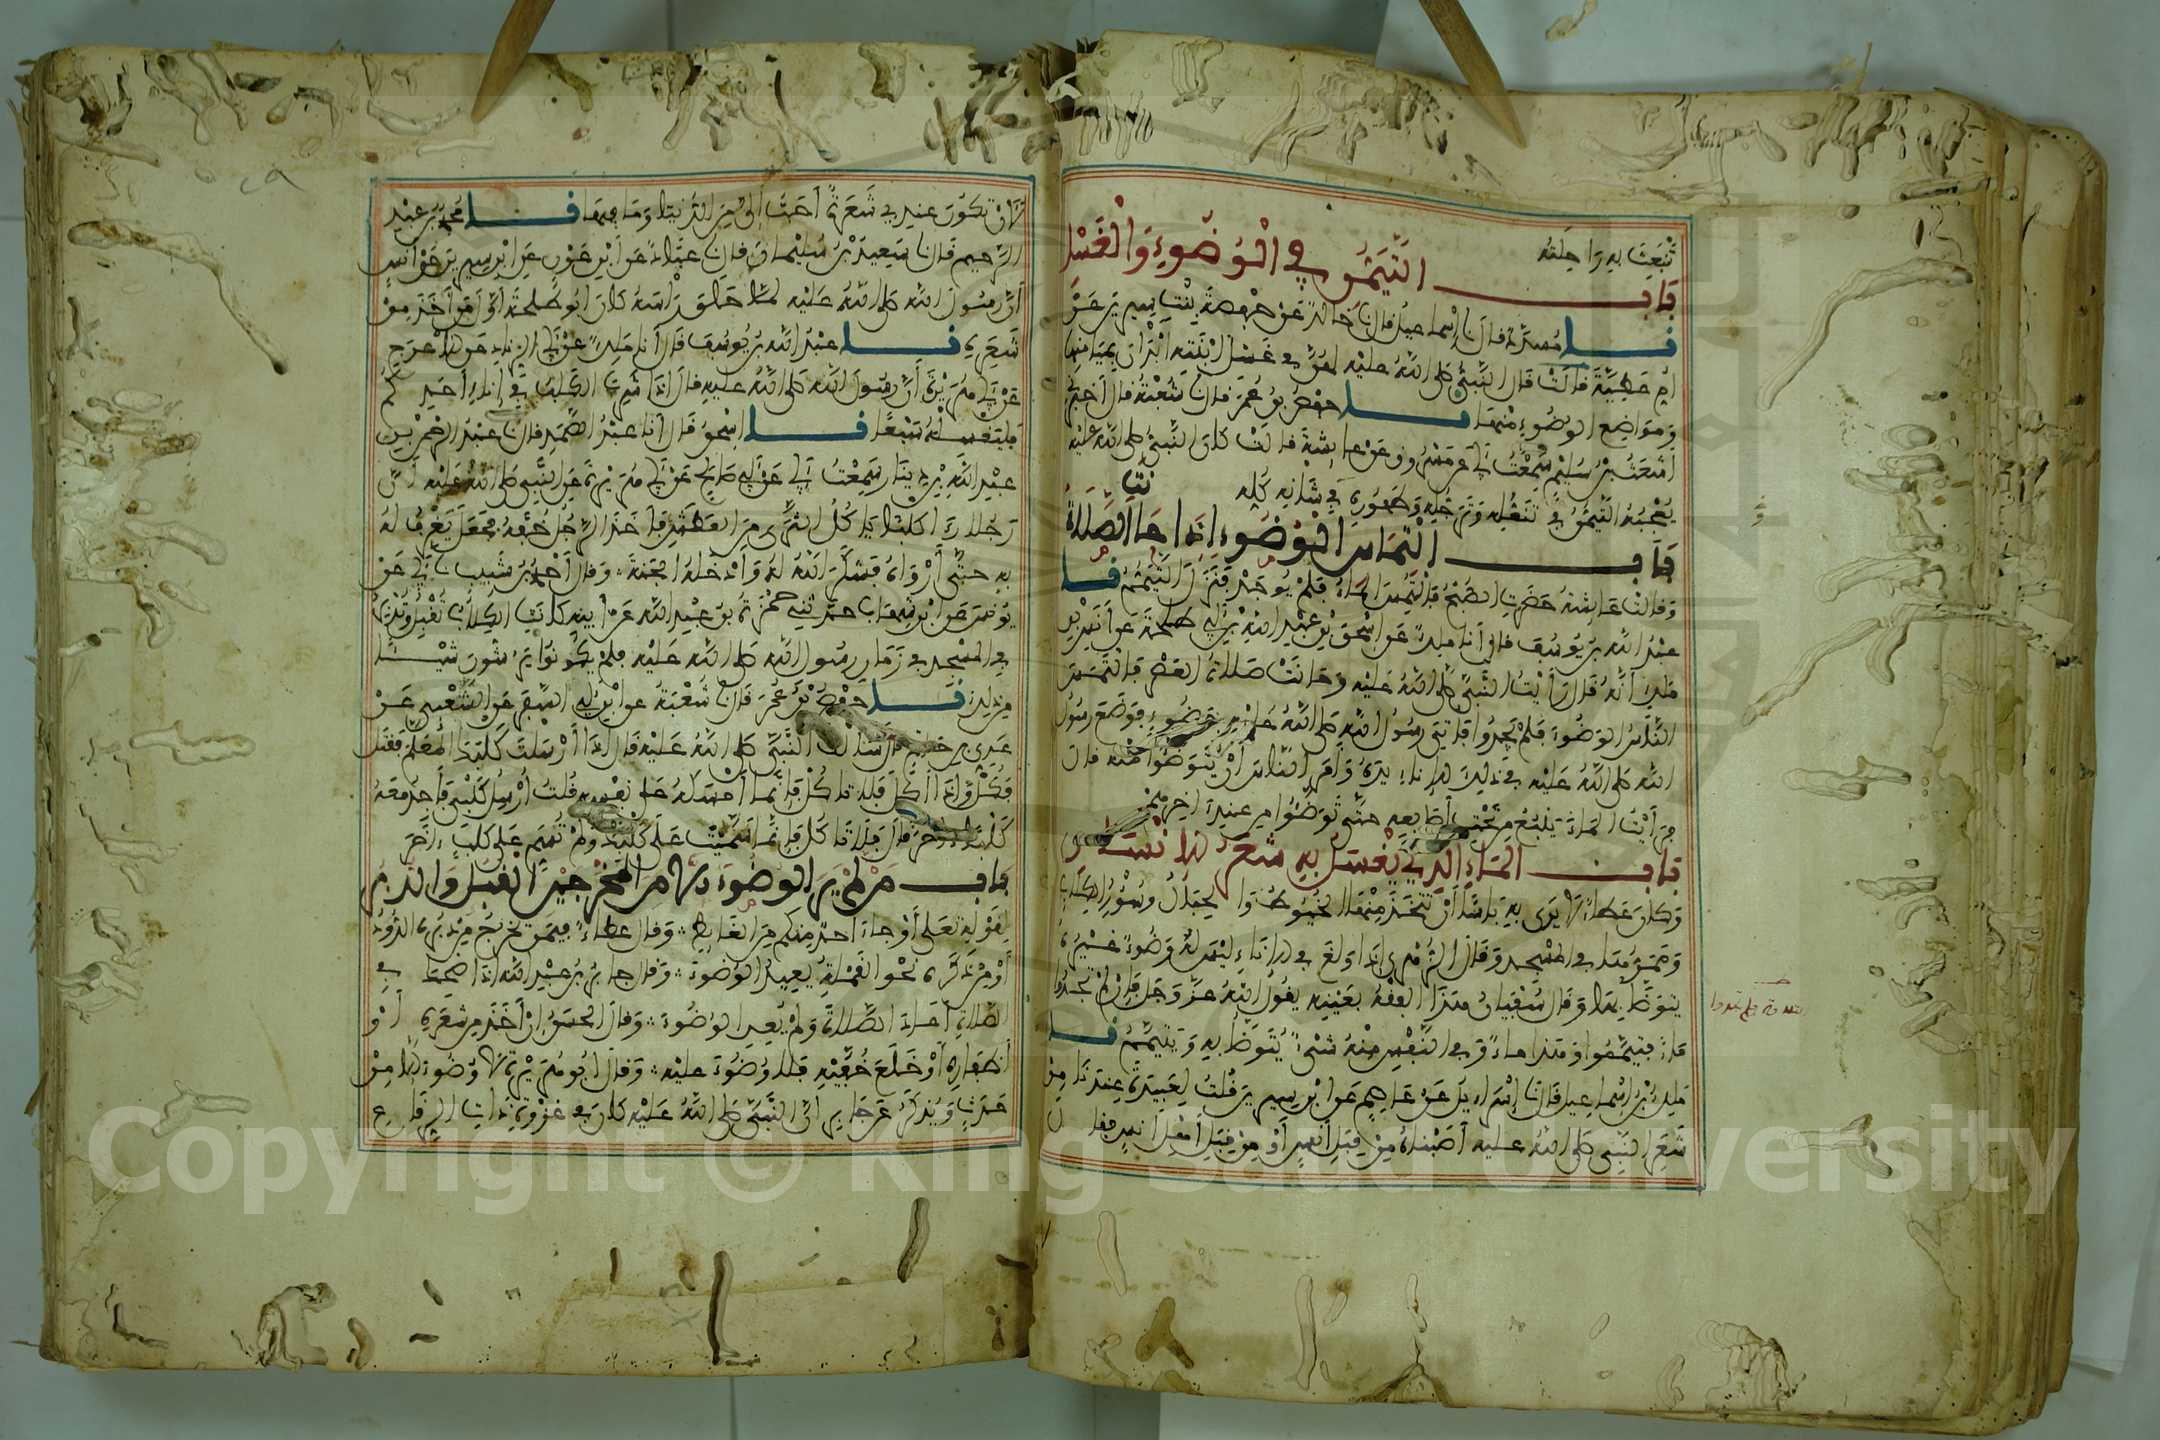 تنبعث به راحلته
باب التيمن في الوضوء والغسل
نا مسدد قال نا إسماعيل قال نا خالد عن حفصة بنت سيرين عن
أم عطية قالت قال النبي صلى الله عليه لهن في غسل ابنته ابدأن بميامنها
ومواضع الوضوء منها نا حفص بن عمر قال نا شعبة قال أخبرني
أشعث بن سليم سمعت أبي عن مسروق عن عائشة قالت كان النبي صلى الله عليه
يعجبه التيمن في تنعله وترجله وطهوره في شأنه كله
باب التماس الوضوء إذا حانت الصلاة
وقالت عائشة حضرت الصبح فالتمس الماء فلم يوجد فنزل التيمم نا
عبد الله بن يوسف قال أنا ملك عن إسحق بن عبد الله بن أبي طلحة عن أنس بن
ملك أنه قال رأيت النبي صلى الله عليه وحانت صلاة العصر فالتمس
الناس الوضوء فلم يجدوا فأتي رسول الله صلى الله عليه بوضوء فوضع رسول
الله صلى الله عليه في ذلك الإناء يده وأمر الناس أن يتوضؤا منه قال
فرأيت الماء ينبع من تحت أصابعه حتى توضؤا من عند آخرهم
باب الماء الذي يغسل به شعر الإنسان
وكان عطاء لا يرى به بأسا أن تتخذ منها الخيوط والحبال وسؤر الكلاب
وممرها في المسجد وقال الزهري إذا ولغ في الإناء ليس له وضوء غيره
يتوضأ به وقال سفيان هذا الفقه بعينه يقول الله عز وجل فإن لم تجدوا
ماء فتيمموا وهذا ماء وفي النفس منه شيء يتوضأ به ويتيمم نا
ملك بن إسماعيل قال نا إسراءيل عن عاصم عن ابن سيرين قلت لعبيدة عندنا من
شعر النبي صلى الله عليه أصبناه من قبل أنس أو من قبل أهل أنس فقال
لأن تكون عندي شعرة أحب إلي من الدنيا وما فيها نا محمد بن عبد
الرحيم قال نا سعيد بن سليمان قال نا عباد عن ابن عون عن ابن سيرين عن أنس
أن رسول الله صلى الله عليه لما حلق رأسه كان أبو طلحة أول من أخذ من
شعره نا عبد الله بن يوسف قال أنا ملك عن أبي الزناد عن الأعرج
عن أبي هريرة أن رسول الله صلى الله عليه قال إذا شرب الكلب في إناء أحدكم
فليغسله سبعا نا إسحق قال أنا عبد الصمد قال نا عبد الرحمن بن
عبد الله بن دينار سمعت أبي عن أبي صالح عن أبي هريرة عن النبي صلى الله عليه أن
رجلا رأى كلبا يأكل الثرى من العطش فأخذ الرجل خفه فجعل يغرف له
به حتى أرواه فشكر الله له وأدخله الجنة وقال أحمد بن شبيب نا أبي عن
يونس عن ابن شهاب حدثني حمزة بن عبد الله عن أبيه كانت الكلاب تقبل وتدبر
في المسجد في زمان رسول الله صلى الله عليه فلم يكونوا يرشون شيئا
من ذلك نا حفص بن عمر قال نا شعبة عن ابن أبي السفر عن الشعبي عن
عدي بن حاتم قال سألت النبي صلى الله عليه فقال إذا أرسلت كلبك المعلم فقتل
فكل وإذا أكل فلا تأكل فإنما أمسكه على نفسه قلت أرسل كلبي فأجد معه
كلبا آخر قال فلا تأكل فإنما سميت على كلبك ولم تسم على كلب آخر
باب من لم ير الوضوء إلا من المخرجين القبل والدبر
لقوله تعلى أو جاء أحد منكم من الغائط وقال عطاء فيمن يخرج من دبره الدود
أو من ذكره نحو القملة يعيد الوضوء وقال جابر بن عبد الله إذا ضحك في
الصلاة أعاد الصلاة ولم يعد الوضوء وقال الحسن إن أخذ من شعره أو
أظفاره أو خلع خفيه فلا وضوء عليه وقال أبو هريرة لا وضوء إلا من
حدث ويذكر عن جابر أن النبي صلى الله عليه كان في غزوة ذات الرقاع
Copyright © King Saud University